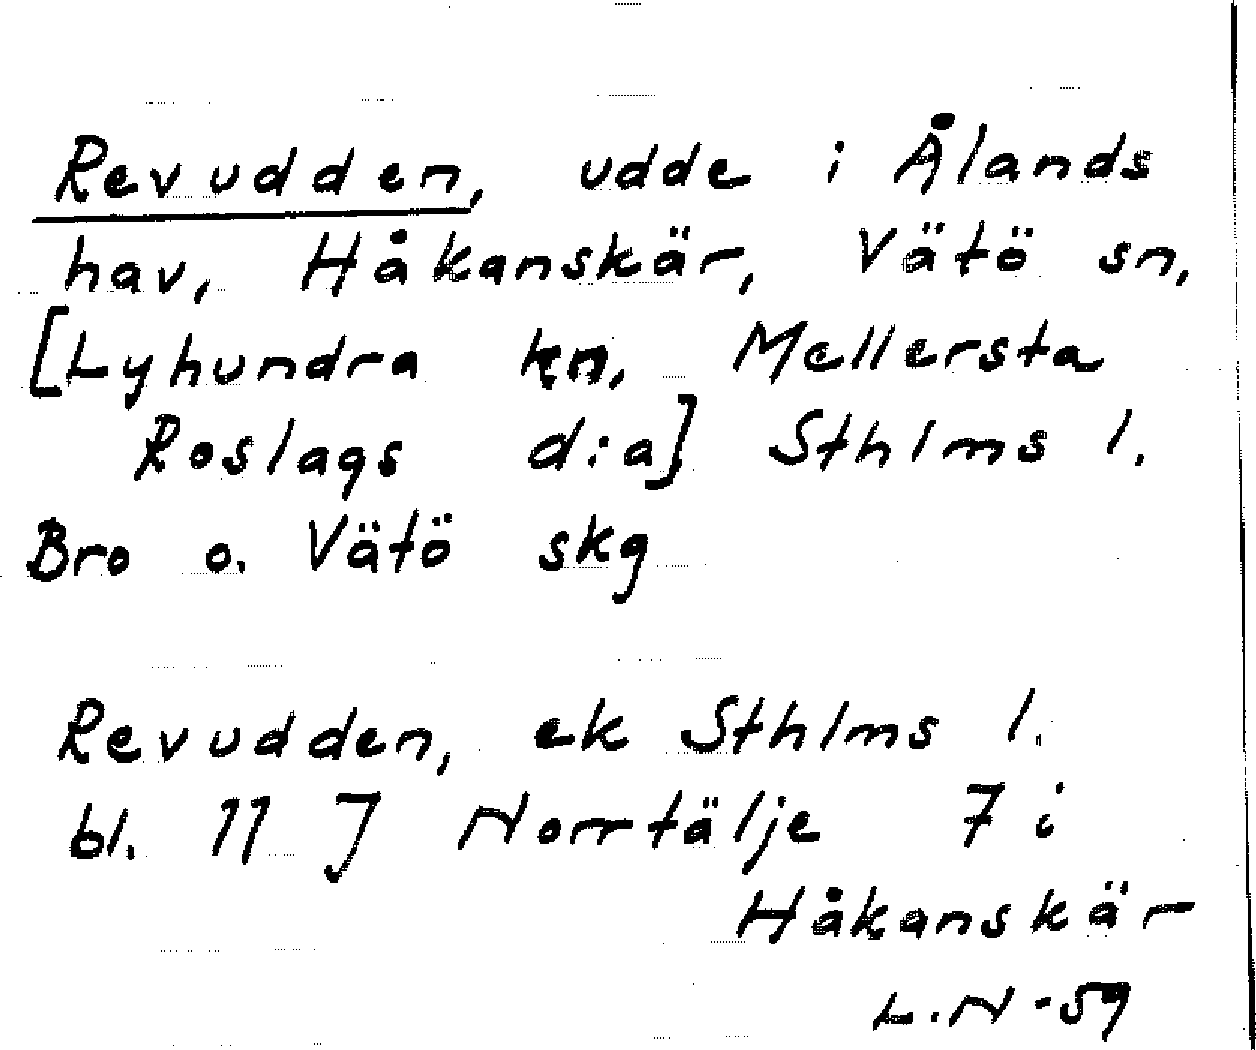 Revudden, udde i Ålands
hav, Håkanskär, Vätö sn,
[Lyhundra kn, Mellersta
Roslags d:a] Sthlms l.
Bro o. Vätö skg
Revudden, ek Sthlms l.
bl. 11 J Norrtälje 7 i
Håkanskär
L.N -59